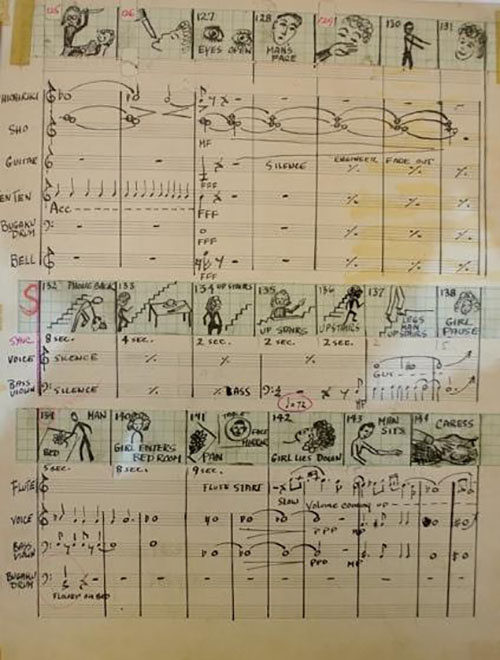 125 126 127 128 129 130 131
EYES OPEN
MAN'S FACE
HICHIRIKI
SHO
MF
GUITAR
SILENCE ENGINEER FADE OUT
FFF
Acc
FFF
BUGAKU DRUM
FFF
BELL
FFF
S
132 133 134 UP STAIRS 135 136 137 138
UP STAIRS
UPSTAIRS
LEGS MAN UPSTAIRS
GIRL PAUSE
SYNC. 8 SEC. 4 SEC. 2 SEC. 2 SEC. 2 SEC.
VOICE SILENCE
BASS VIOLIN SILENCE BASS
♩=72
MP
139 MAN 140 141 142 143 MAN SITS 144 CARESS
BED
GIRL ENTERS BEDROOM
PAN
GIRL LIES DOWN
5 SEC. 8 SEC. 9 SEC.
FLUTE FLUTE START
SLOW
Volume coming up
VOICE
PPP MP
BASS VIOLIN
PPP MP
BUGAKU DRUM